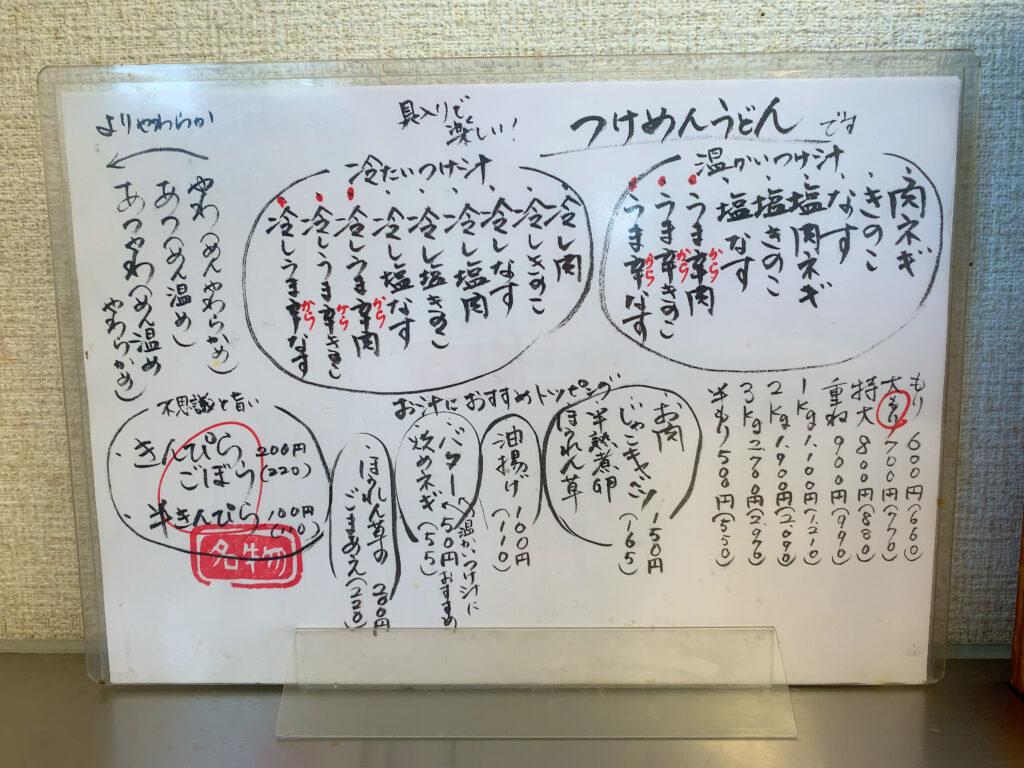 つけめんうどんです
具入りで
楽しい！
温かいつけ汁
・肉ネギ
・きのこ
・なす
・塩肉ネギ
・塩きのこ
・塩なす
・うま辛肉
から
・うま辛きのこ
から
・うま辛なす
から
冷たいつけ汁
・冷し肉
・冷しきのこ
・冷しなす
・冷し塩肉
・冷し塩きのこ
・冷し塩なす
・冷しうま辛肉
から
・冷しうま辛きのこ
から
・冷しうま辛なす
から
よりやわらか
やわ（めんやわらかめ）
あつ（めん温め）
あつやわ（めん温め
やわらかめ）
もり 600円（660）
大もり 700円（770）
特大 800円（880）
重ね 900円（990）
1kg 1,100円（1,210）
2kg 1,900円（2,090）
3kg 2,700円（2,970）
半もり 500円（550）
お汁におすすめトッピング
お肉
じゃこキャベツ
半熟煮卵
ほうれん草
150円
（165）
油揚げ 100円
（110）
バター
炒めネギ
温かいつけ汁に
おすすめ
50円
（55）
ほうれん草の
ごまあえ
200円
（220）
不思議と旨い
・きんぴら
ごぼう
200円
（220）
・半きんぴら 100円
（110）
名物